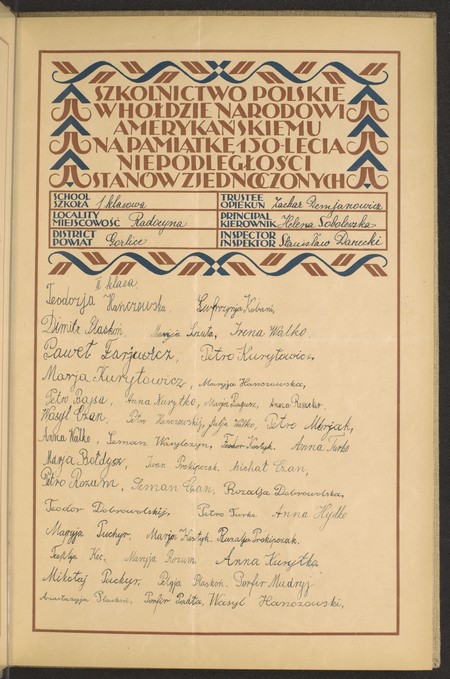 SZKOLNICTWO POLSKIE
W HOŁDZIE NARODOWI
AMERYKAŃSKIEMU
NA PAMIĄTKĘ 150-LECIA
NIEPODLEGŁOŚCI
STANÓW ZJEDNOCZONYCH
SCHOOL SZKOŁA 1 klasowa
TRUSTEE OPIEKUN Zachar Demjanowicz
LOCALITY MIEJSCOWOŚĆ Radocyna
PRINCIPAL KIEROWNIK Helena Sobolewska
DISTRICT POWIAT Gorlice
INSPECTOR INSPEKTOR Stanisław Panecki
II klasa
Teodozja Hanczewska, Eufrozynja Kabani,
Dimitr Płaskoń, Maryja Irena Walko
Paweł Farjewicz, Petro Kuryłowicz,
Marja Kuryłowicz, Maryja Hanczowska,
Petro Bajsa, Anna Kurytko, Marja Anna
Wasyl Czan, Petr Hanczowskij, Julja Walko, Petro Merjak,
Anna Walko, Seman Wasylczyn, Teodor Kostyk, Anna Turko
Marja Bołdysz, Iwan Prokipczak, Michał Czan,
Petro Rozum, Seman Czan, Rozalja Dobrowolska,
Teodor Dobrowolskij, Petro Turko Anna Hydko
Maryja Puchyr, Marja Kostyk, Rozalja Prokipczak.
Kec, Maryja Rozum, Anna Kurytka
Mikołaj Puchyr, Pelgja Płaskoń, Porfir Mudryj
Anastazyja Płaskoń, Porfir Padła, Wasyl Hanczowski,